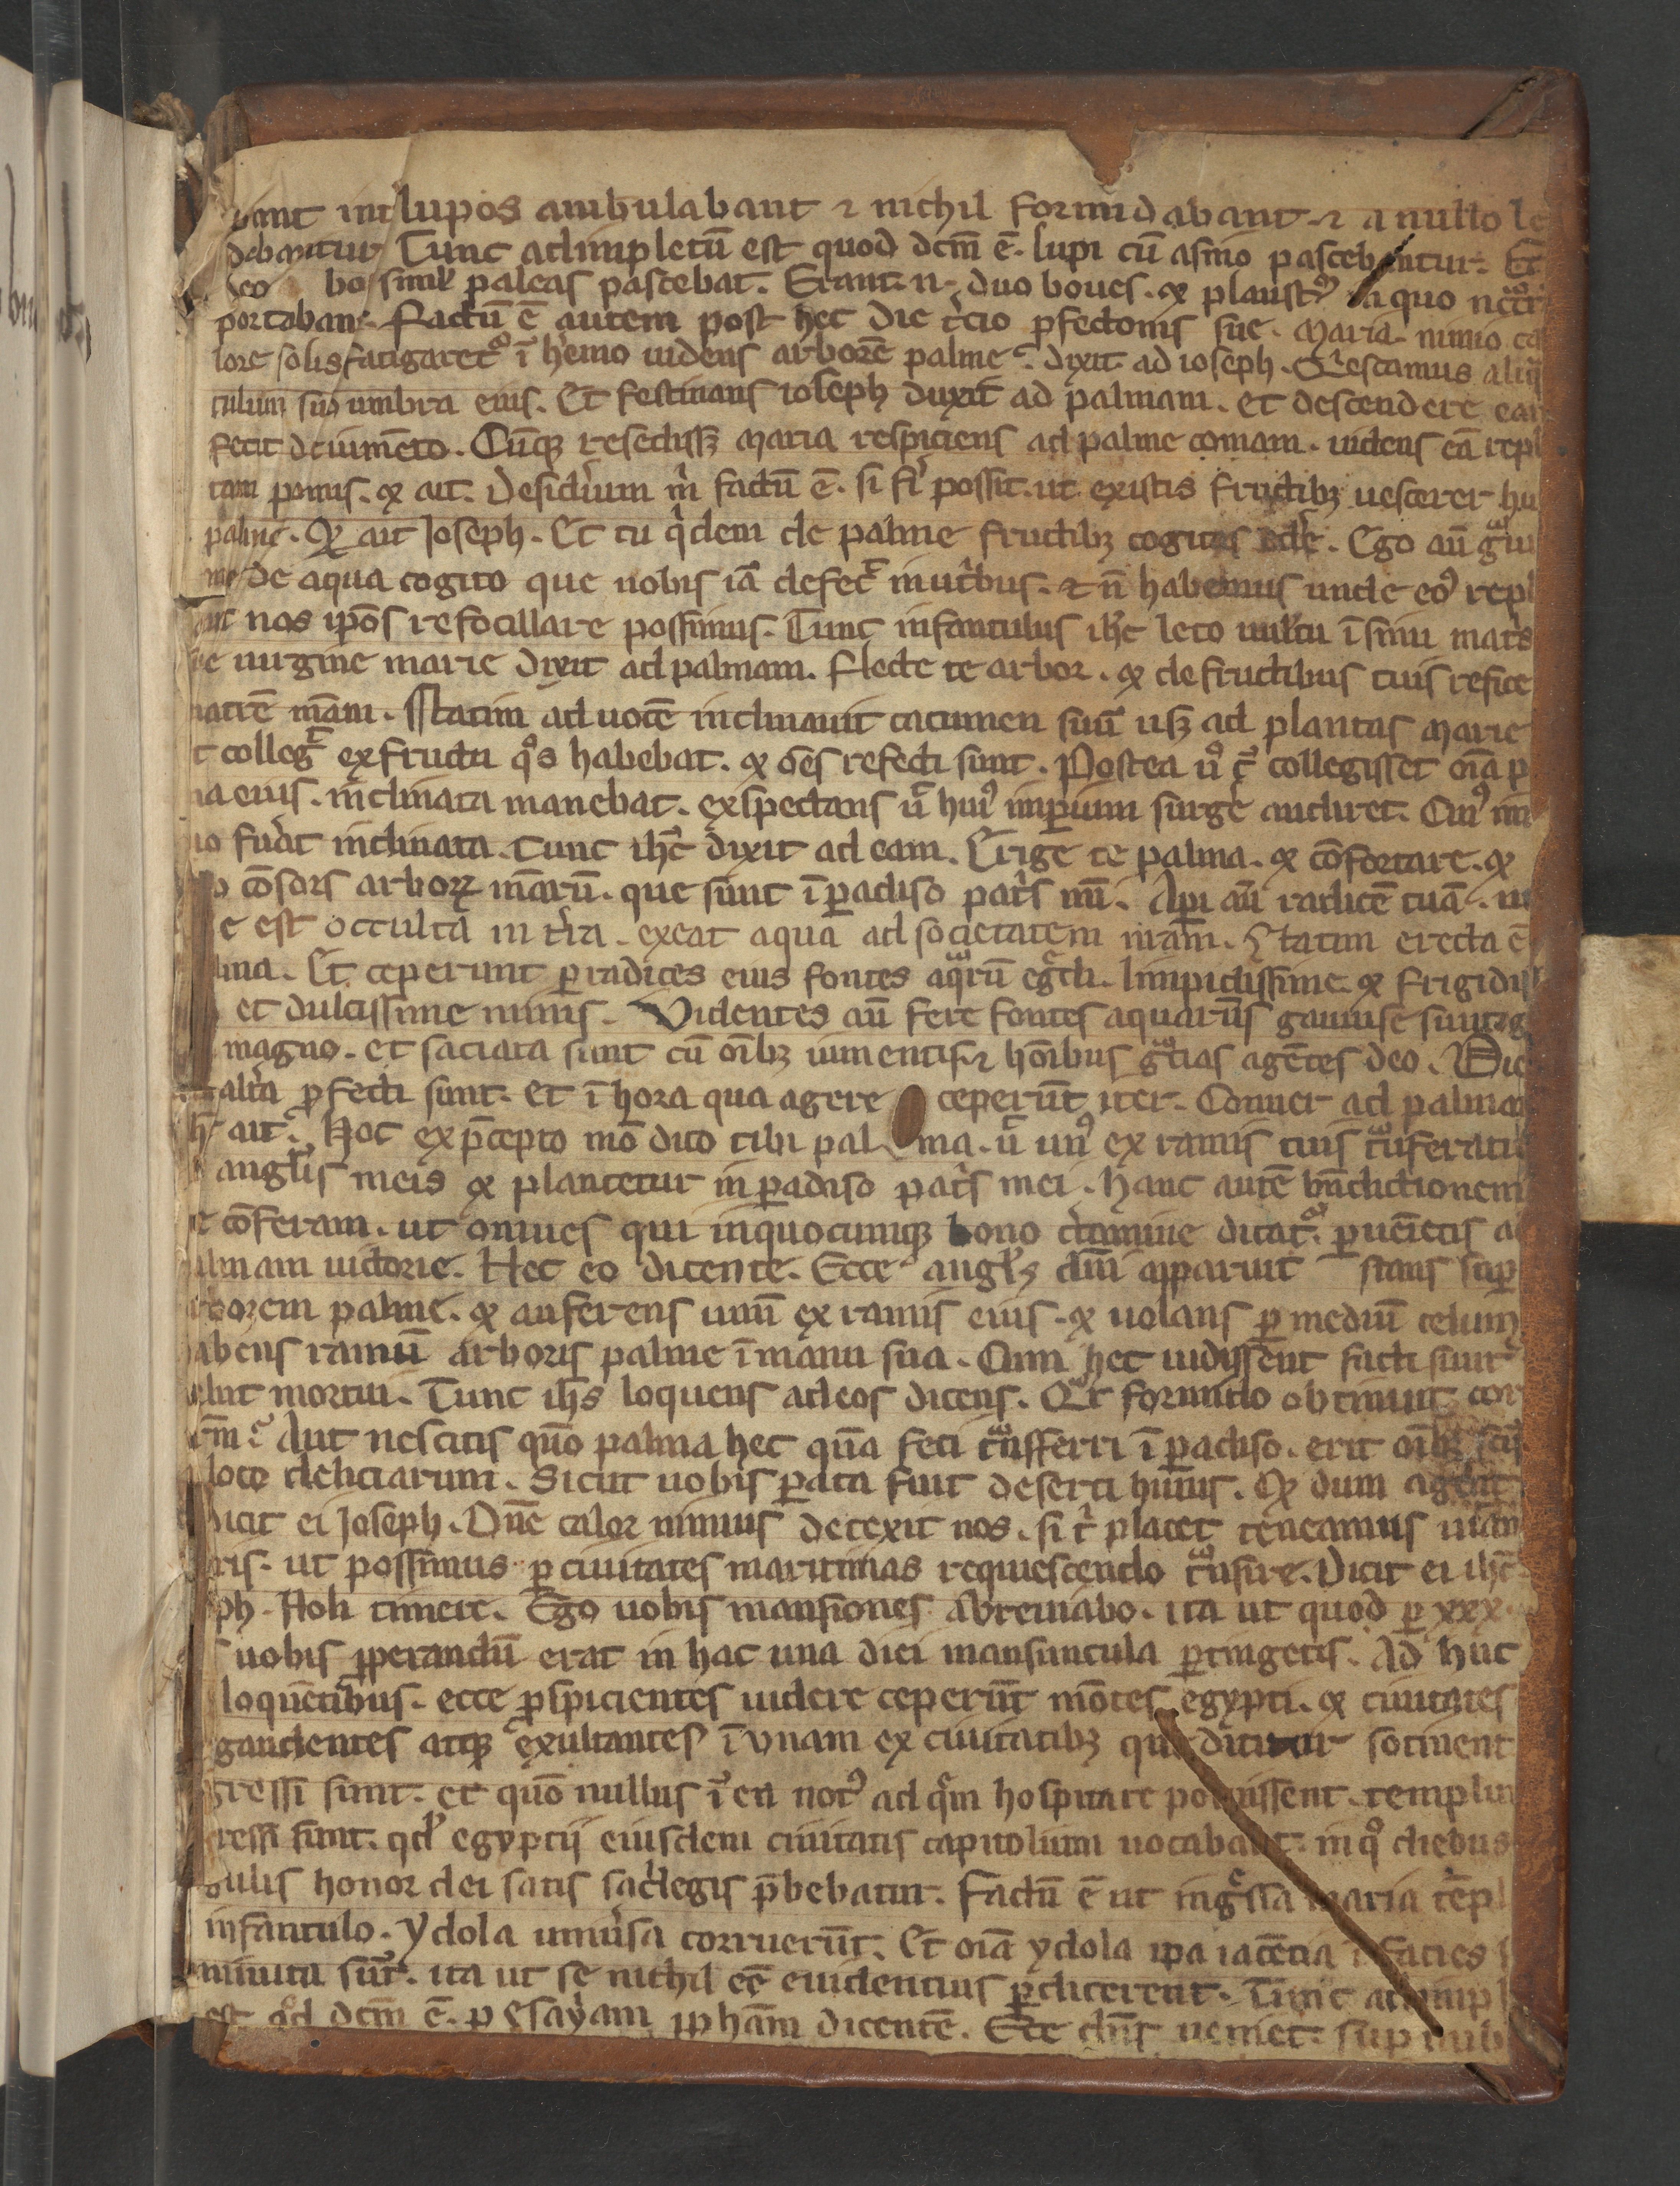 int lupos ambulabant ⁊ nichil formidabant. ⁊ a nullo le
debantur Tunc adimpletū est quod dcm̄ ē. lupi cū asino pascebantur. Et
leo bos simul paleas pascebat. Erant n̄. duo boues. ⁊ plaustrͦ in quo
portabant. Factū ē autem post hec die t̾cio ꝓfectionis sue. Maria. nimio ca
lore solis fatigaret᷒ ī h̾emo uidens arborē palme. dixit ad ioseph. Qͥescamus aliqͣ
tulum sub umbra eius. Et festinans ioseph duxit ad palmam. et descendere eam
fecit de iumēto. Cūqꝫ resedissꝫ maria respiciens ad palme comam. uidens eā repl
tam pomis. ⁊ ait. Desid̾ium m̄ factū ē. si fi̾ possit. ut ex istis fructibꝫ uescerer hu
palme. ⁊ ait Joseph. Et tu qͥdem de palme fructibꝫ cogitas ede̾. Ego aū
me de aqua cogito que nobis iā defec̄ in ut̾bus. ⁊ n̄ habemus unde eoꝰ repl
nos ip̄os refocillare possimus. Tunc infantulus ih̄c leto uultu ī sinu mat̾s
e uirgine marie dixit ad palmam. Flecte te arbor. ⁊ de fructibus tuis refice
matrē m̄am. Statim ad uocē inclinauit cacumen suū usqꝫ ad plantas marie
t colleg̾ ex fructu qͦs habebat. ⁊ om̄s refecti sunt. Postea uͦ qͣ collegisset om̄ia p
ma eius. inclinata manebat. exspectans ut huiꝰ imꝑium surge̾ audiret. Cuiꝰ im
io fu̾at inclinata. tunc ih̄c dixit ad eam. Erige te palma. ⁊ cōfortare. ⁊
o cōsors arboꝝ m̄arū. que sunt ī ꝑadiso pat̾s mī. Aꝑi aū radicē tuā.
e est occulta in t̾ra. exeat aqua ad societatem n̄ram. Statim erecta ē
lma. Et ceperunt ꝑ radices eius fontes aqͣrū egͣdi. limpidissime ⁊ frigidis
et dulcissime nimis. Videntes aū fere fontes aquarum gauise sunt
magno. et saciata sunt cū om̄ibꝫ iumentis ⁊ hoībus gͣcias agētes deo. Die
alt̾a ꝓfecti sunt. Et ī hora qua agere ceperūt iter. Conuer ad palmam
ait. Hoc ex p̄cepto m̄o dico tibi palma. ut unꝰ ex ramis tuis tͣnsferatur
angl̾is meis ⁊ plantetur in ꝑadiso pat̾s mei. Hanc autē bn̄dictionem
e cōferam. ut omnes qui in quocumqꝫ bono c̾tamine dicat᷒. ꝑuēietis a
almam uictorie. Hec eo dicente. Ecce angl̾s dn̄i apparuit stans suꝑ
arborem palme. ⁊ auferens unū ex ramis eius. ⁊ uolans ꝑ mediū celum
abens ramū arboris palme ī manu sua. Cum hec uidissent facti sunt
elut mortui. Tunc ih̄s loquens ad eos dicens. Qͣr formido obtinuit cor
r̄m. Aut nescitis quō palma hec quā feci tͣnsferri ī ꝑadiso. erit om̄ibꝫ scīs
loco deliciarum. Sicut uobis ꝑata fuit deserti huius. ⁊ dum agent
dicit ei Joseph. Dn̄e calor nimius detexit nos. si tͥ placet teneamus uiam
ris. ut possimus ꝑ ciuitates maritimas requiescendo tͣnsire. Dicit ei ih̄c
ph. Noli timere. Ego uobis mansiones abreuiabo. ita ut quod ꝑ xxx
uobis ꝓperandū erat in hac una diei mansiuncula ꝑtingetis. Ad huc
loquētibus. ecce ꝓspicientes uidere ceperūt mōtes egypti. ⁊ ciuitates
gaudentes atqꝫ exultantes ī unam ex ciuitatibꝫ que dicitur sotinent
gressi sunt. et quō nullus ī ea notꝰ ad qͣm hospitare potuissent. templum
ressi sunt. qd̾ egyptij eiusdem ciuitatis capitolium uocabant. in qͦ diebus
gulis honor dei satis sac̾legis p̄bebatur. Factū ē ut ingͣssa maria tēpl
infantulo. ydola uniu̾sa corruerūt. Et om̄ia ydola ip̄a iacētia ī facies
minuta sūt. ita ut se nichil eē euidentius ꝑdicerent. Tunc adimpl
est qͦd dcm̄ ē. p Esayam ꝓpham̄ dicentē. Ecce dn̄s ueniet. sup nub